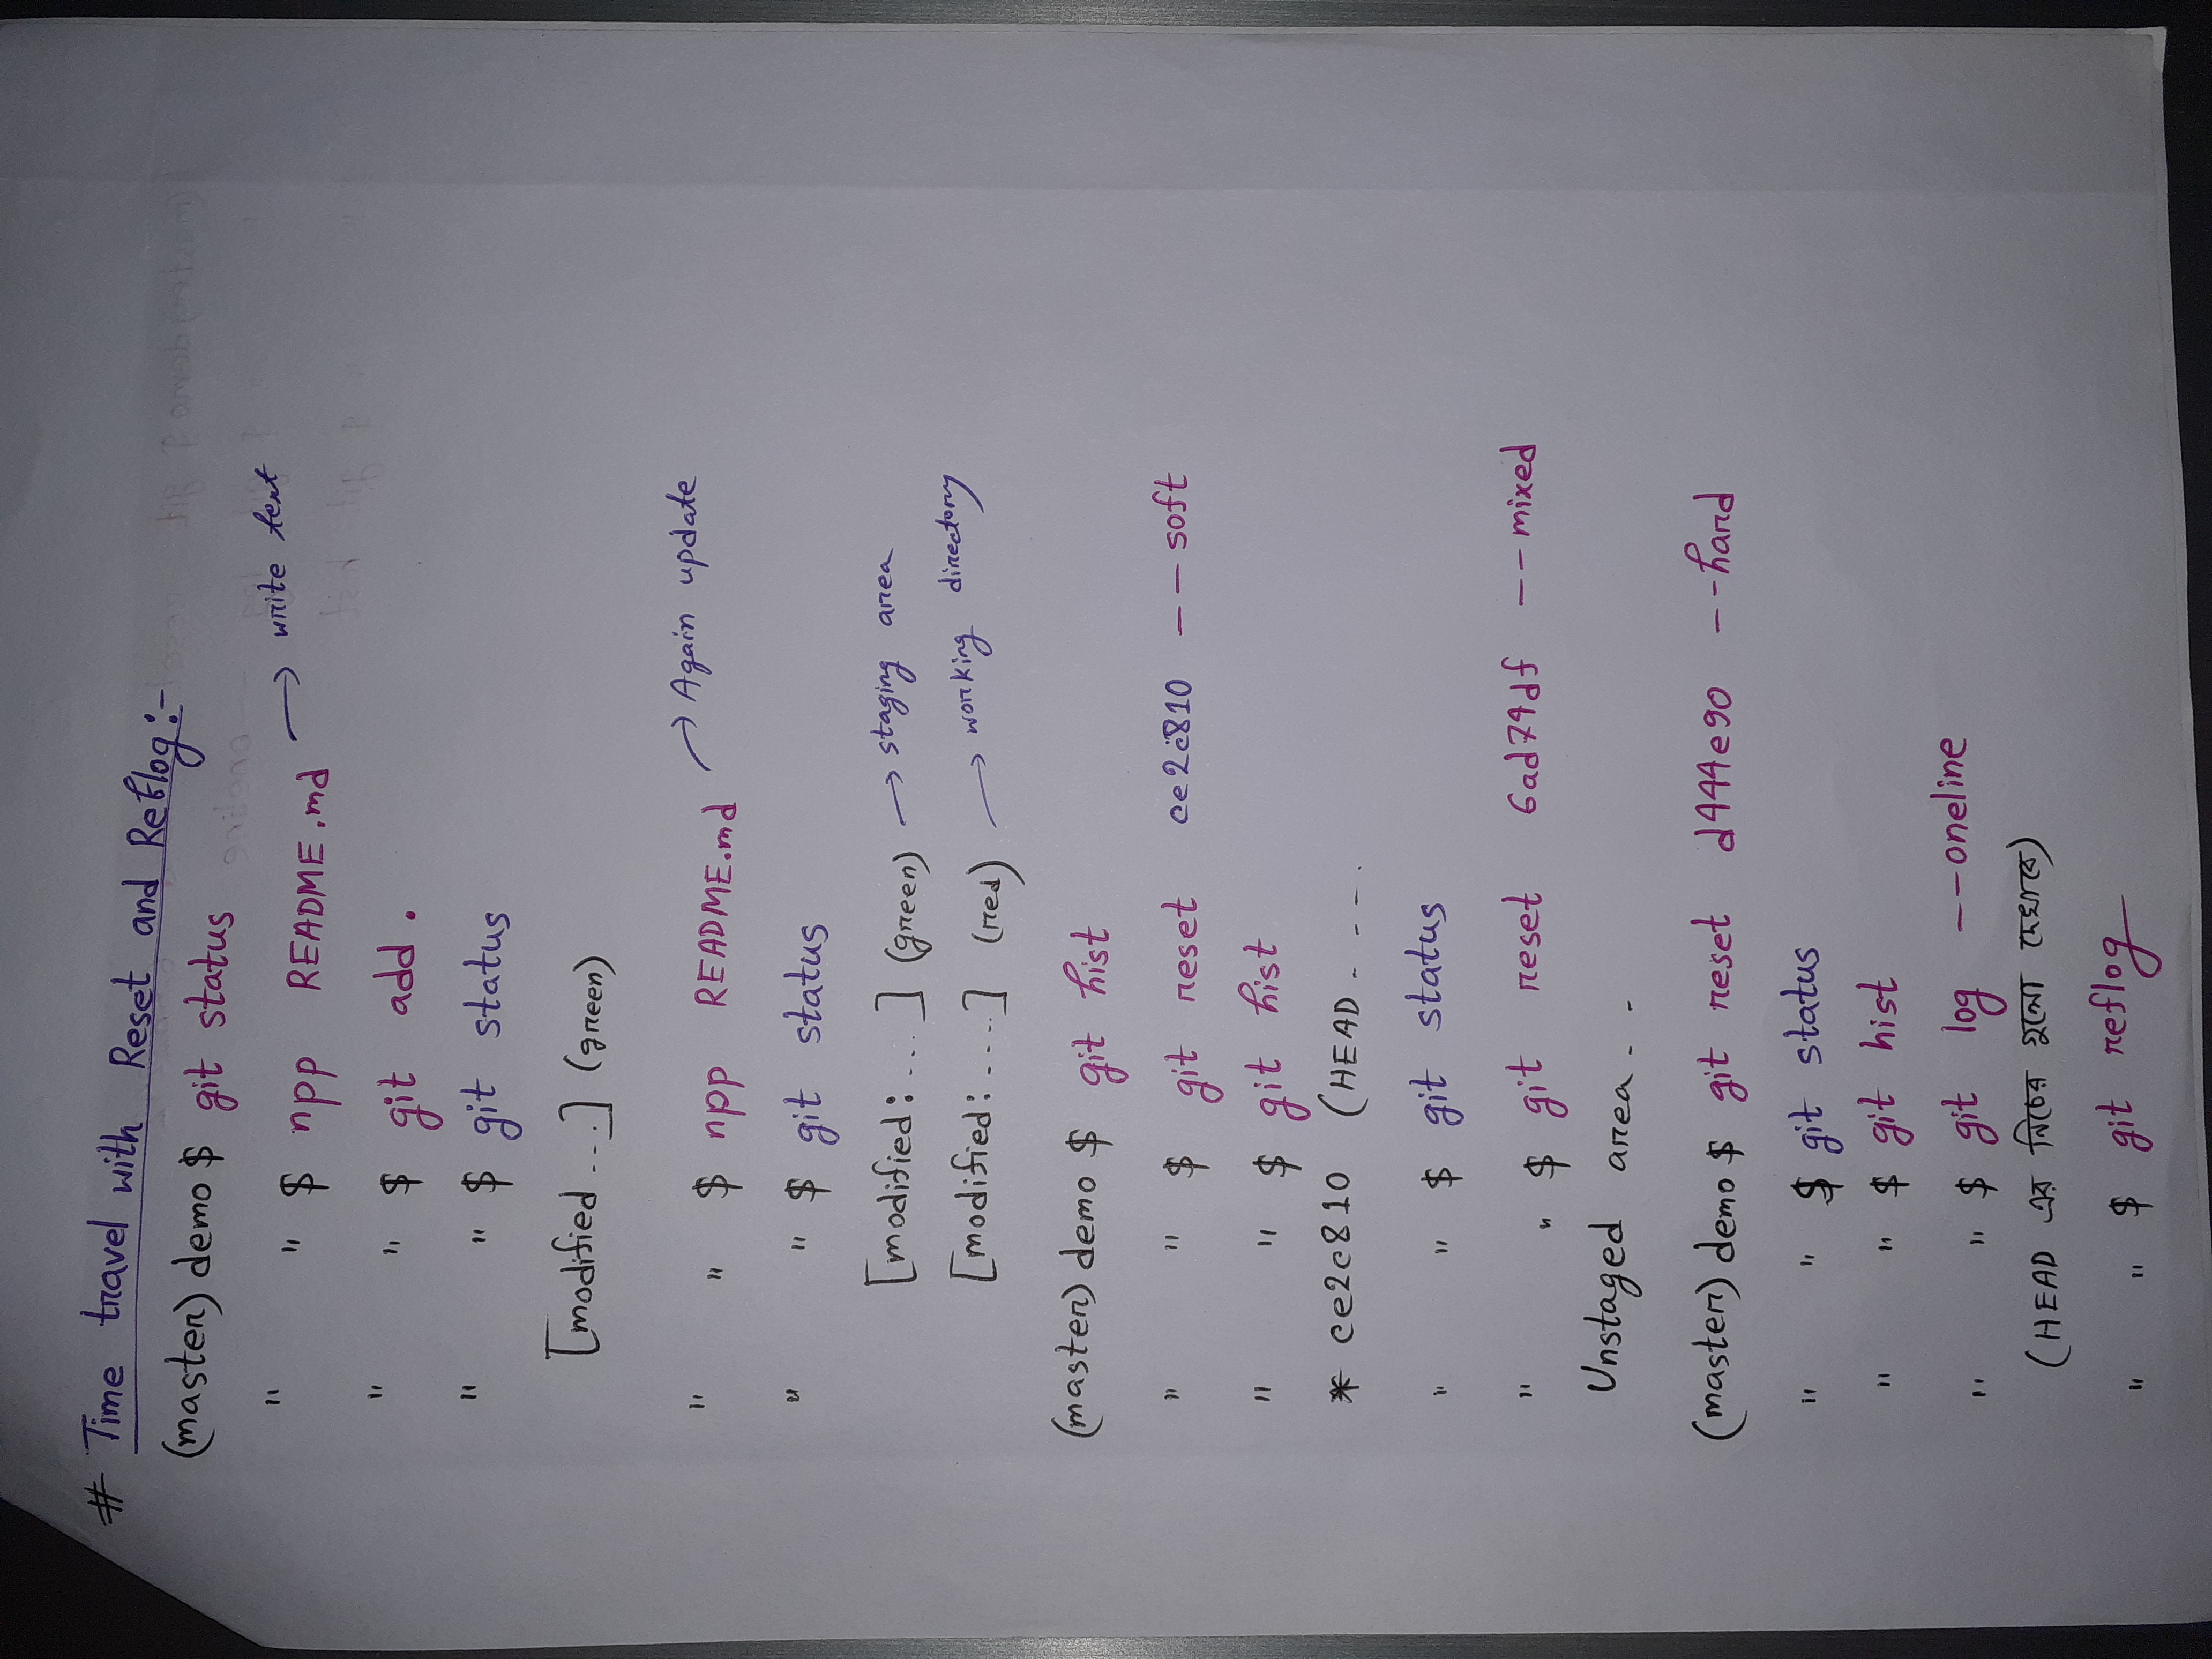 # Time travel with Reset and Reflog:-
(master) demo $ git status
" " $ npp README.md → write text
" " $ git add .
" " $ git status
[modified ...] (green)
" " $ npp README.md → Again update
" " $ git status
[modified: ....] (green) → staging area
[modified: .....] (red) → working directory
(master) demo $ git hist
" " $ git reset ce2c810 --soft
" " $ git hist
* ce2c810 (HEAD - - - .
" " $ git status
" " $ git reset 6ad74df --mixed
Unstaged area - -
(master) demo $ git reset d444e90 --hard
" " $ git status
" " $ git hist
" " $ git log --oneline
(HEAD এর নিচের গুলো দেখাবে)
" " $ git reflog